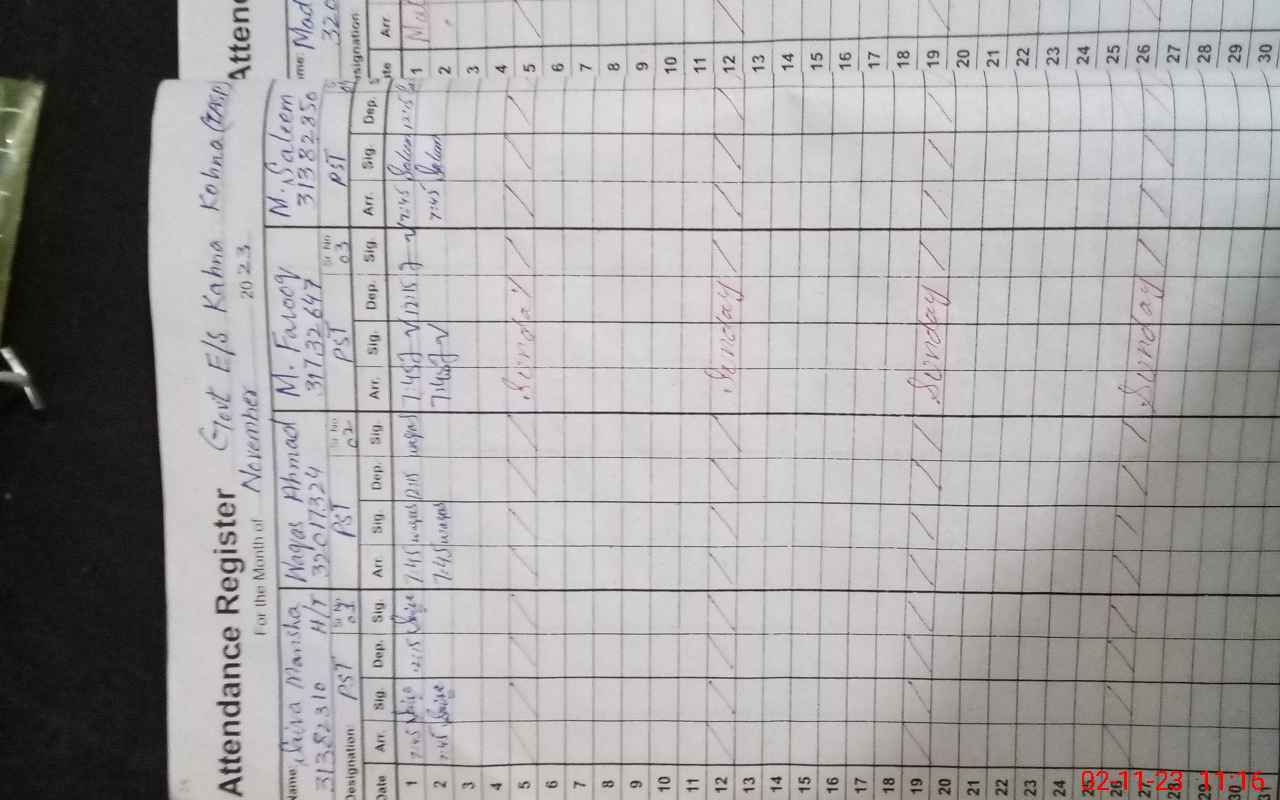 Attendance Register Govt E/S Kahna Kohna (TASP)
For the Month of November 2023
Name: Saira Manisha H/T Waqas Ahmad M. Farooq M. Saleem
31382310 32017324 31732647 31382350
Designation: PST Sr No. 01 PST Sr No. 02 PST Sr No 03 PST
Date Arr. Sig. Dep. Sig. Arr. Sig. Dep. Sig. Arr. Sig. Dep. Sig. Arr. Sig. Dep.
1 7:45 Saira 12:15 Saira 7:45 waqas 12:15 waqas 7:45 12:15 7:45 Saleem 12:15
2 7:45 Saira 7:45 waqas 7:45 7:45 Saleem
3
4
5 Sunday
6
7
8
9
10
11
12 Sunday
13
14
15
16
17
18
19 Sunday
20
21
22
23
24
25
26 Sunday
27
28
29
30
31
Atten
me: Mad
320
esignation
te Arr.
1
2
3
4
5
6
7
8
9
10
11
12
13
14
15
16
17
18
19
20
21
22
23
24
25
26
27
28
29
30
02-11-23 11:16